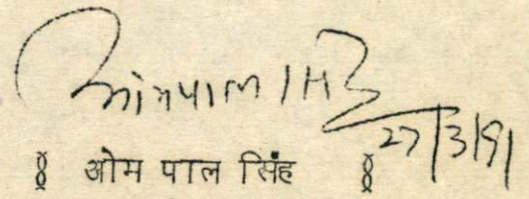 ओमपाल सिंह
27/3/91
४ ओम पाल सिंह ४